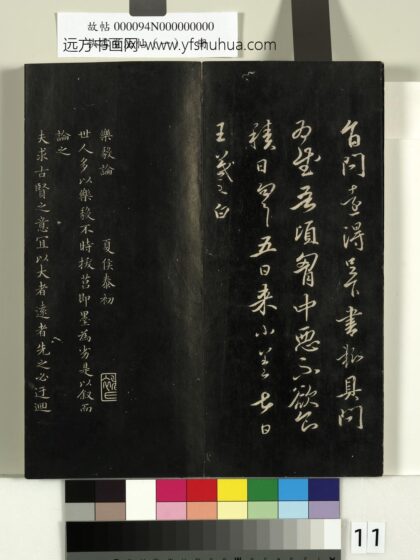 故帖 000094N000000000
远方书画网-www.yfshuhua.com
問得足下書極具問
為慰吾頃胸中惡不欲食
積日五日來小差
王羲之白
樂毅論 夏侯泰初
世人多以樂毅不時拔莒即墨為劣是以叙而
論之
夫求古賢之意宜以大者遠者先之必迂迴
11